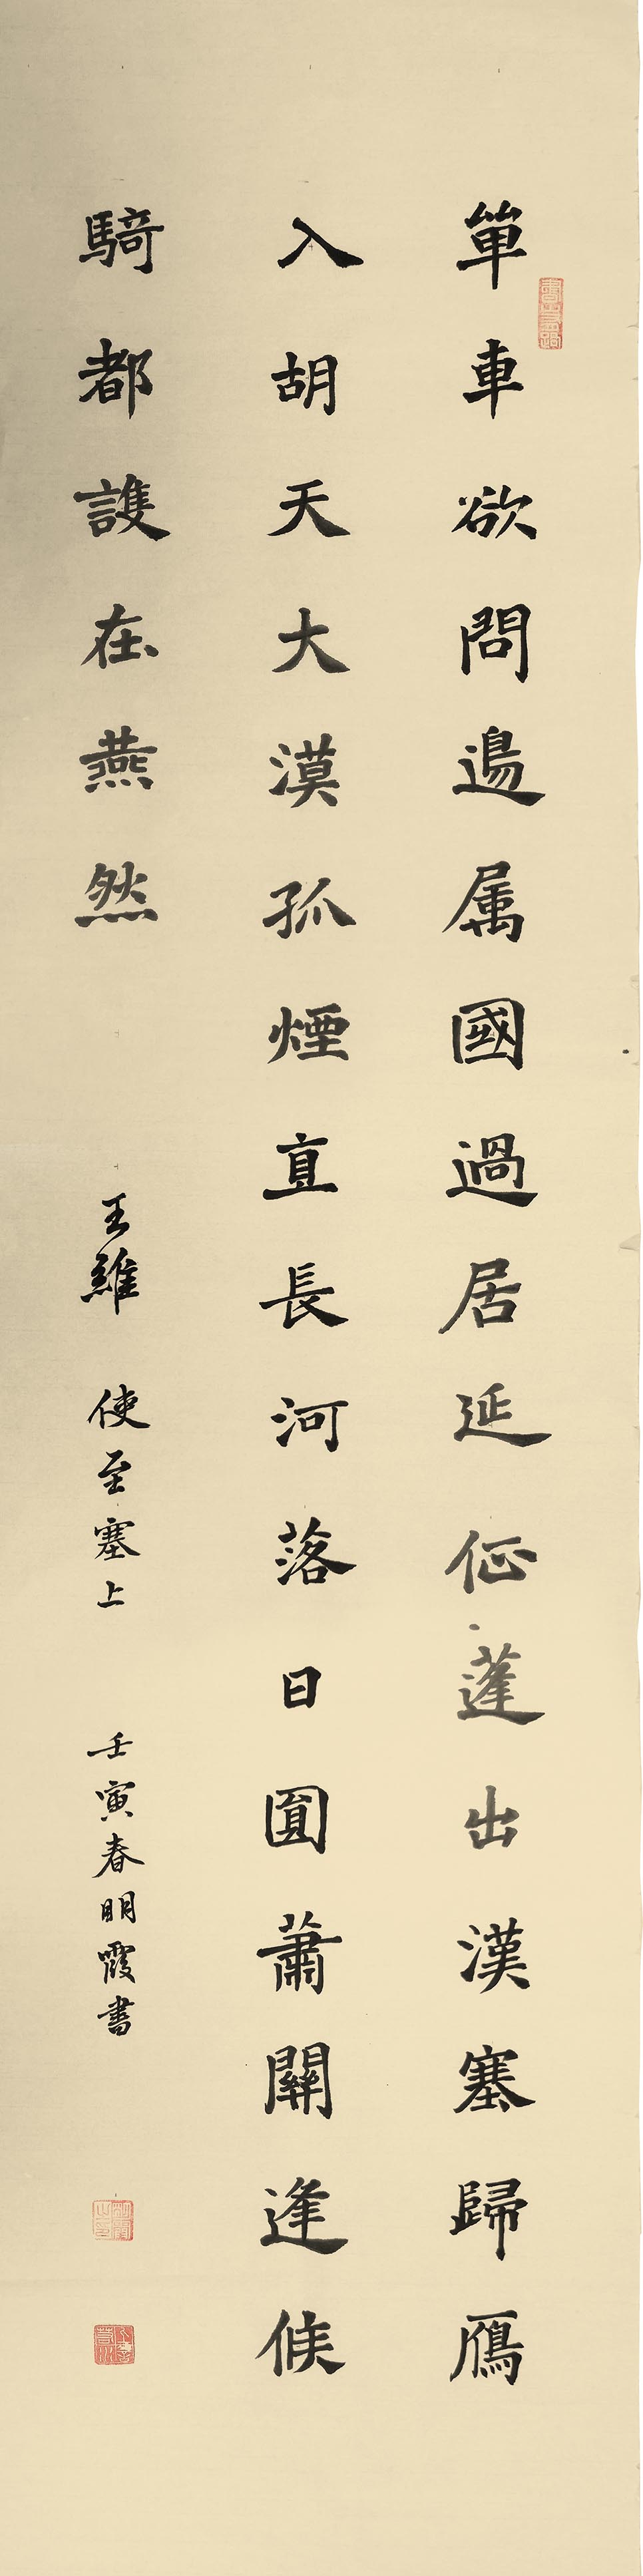 單車欲問邊属國過居延征蓬出漢塞歸鴈
入胡天大漠孤煙直長河落日圓蕭關逢候
騎都護在燕然 王維 使至塞上 壬寅春明霞書